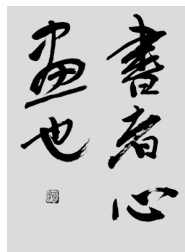 書者心
畫也